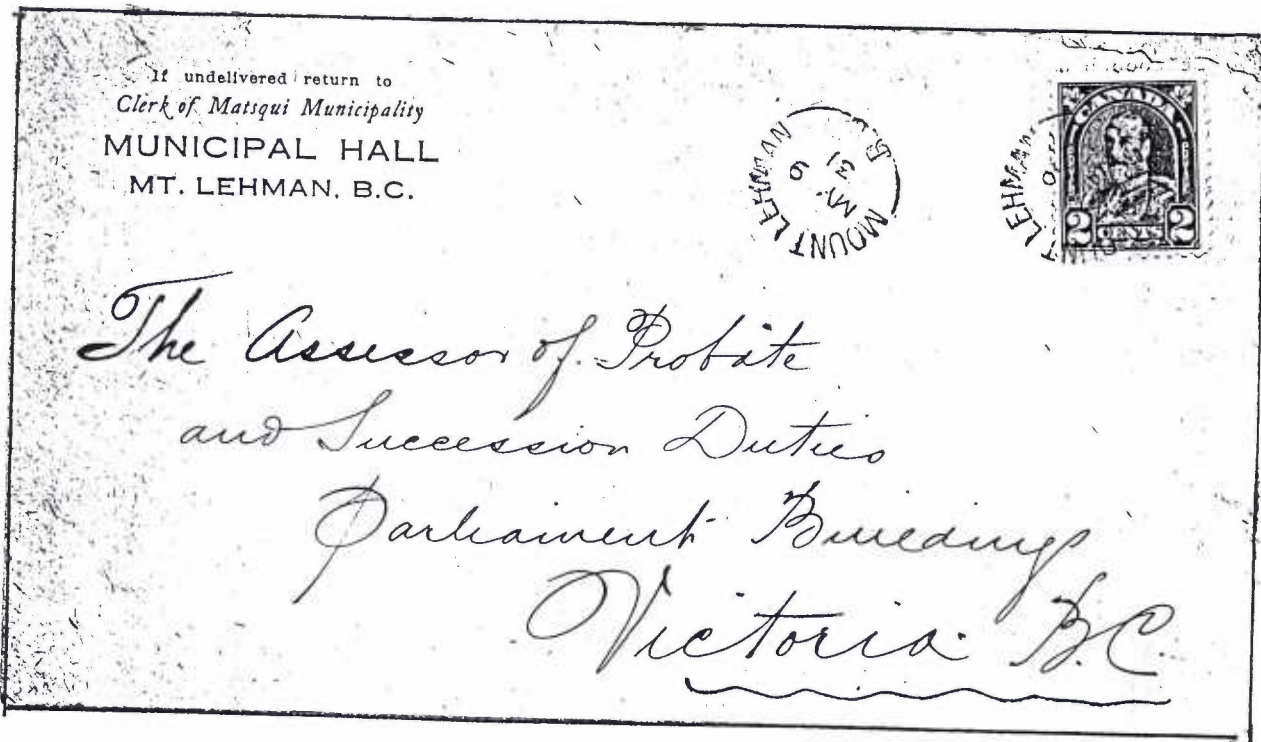 If undelivered return to
Clerk of Matsqui Municipality
MUNICIPAL HALL
MT. LEHMAN, B.C.
MOUNT LEHMAN
B.C.
MY 9
31
T LEHMAN
CANADA
2 CENTS 2
The Assessor of Probate
and Succession Duties
Parliament Buildings
Victoria B.C.